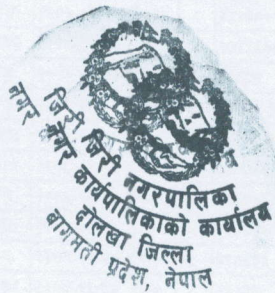 जिरी जिरी नगरपालिका
नगर नगर कार्यपालिकाको कार्यालय
दोलखा जिल्ला
बागमती प्रदेश, नेपाल